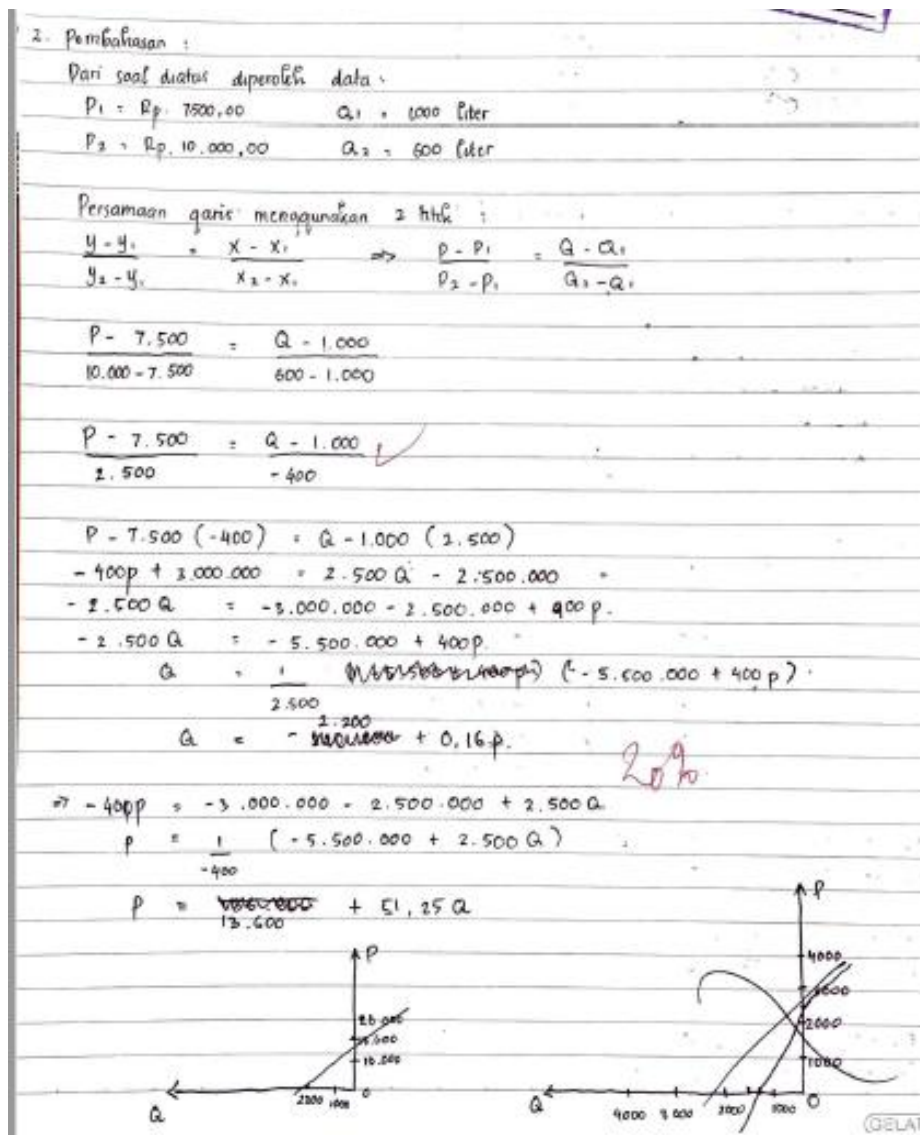 2. Pembahasan :
Dari soal diatas diperoleh data :
P₁ = Rp. 7500,00 Q₁ = 1000 liter
P₂ = Rp. 10.000,00 Q₂ = 600 liter
Persamaan garis menggunakan 2 titik :
y - y₁ / y₂ - y₁ = x - x₁ / x₂ - x₁ => P - P₁ / P₂ - P₁ = Q - Q₁ / Q₂ - Q₁
P - 7.500 / 10.000 - 7.500 = Q - 1.000 / 600 - 1.000
P - 7.500 / 2.500 = Q - 1.000 / -400
P - 7.500 (-400) = Q - 1.000 (2.500)
- 400p + 3.000.000 = 2.500 Q - 2.500.000
- 2.500 Q = -3.000.000 - 2.500.000 + 400 p.
- 2.500 Q = - 5.500.000 + 400p.
Q = 1 / 2.500 (- 5.500.000 + 400 p)
Q = - 2.200 + 0,16 p.
20%
=> - 400p = -3.000.000 - 2.500.000 + 2.500 Q
P = 1 / -400 (- 5.500.000 + 2.500 Q)
P = 13.600 + 51,25 Q
P
20.000
10.000
2000 1000 0
Q
P
4000
2000
1000
4000 3000 2000 1000 0
Q